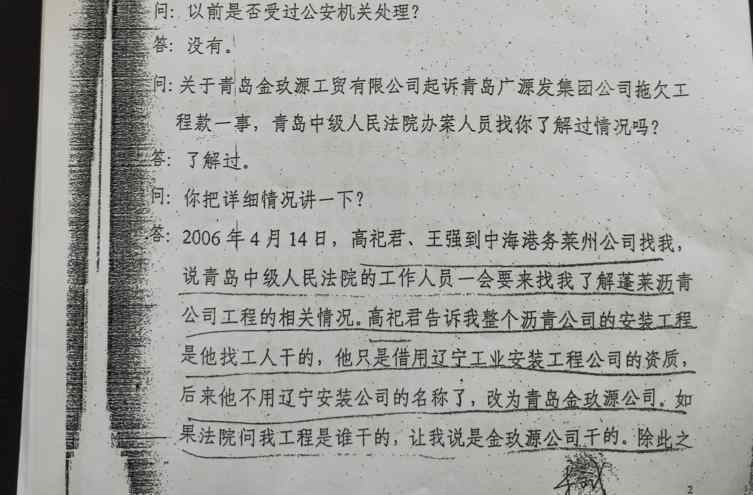 问: 以前是否受过公安机关处理?
答: 没有。
问: 关于青岛金玖源工贸有限公司起诉青岛广源发集团公司拖欠工
程款一事，青岛中级人民法院办案人员找你了解过情况吗?
答: 了解过。
问: 你把详细情况讲一下?
答: 2006 年 4 月 14 日，高祀君、王强到中海港务莱州公司找我，
说青岛中级人民法院的工作人员一会要来找我了解蓬莱沥青
公司工程的相关情况。高祀君告诉我整个沥青公司的安装工程
是他找工人干的，他只是借用辽宁工业安装工程公司的资质，
后来他不用辽宁安装公司的名称了，改为青岛金玖源公司。如
果法院问我工程是谁干的，让我说是金玖源公司干的。除此之
2